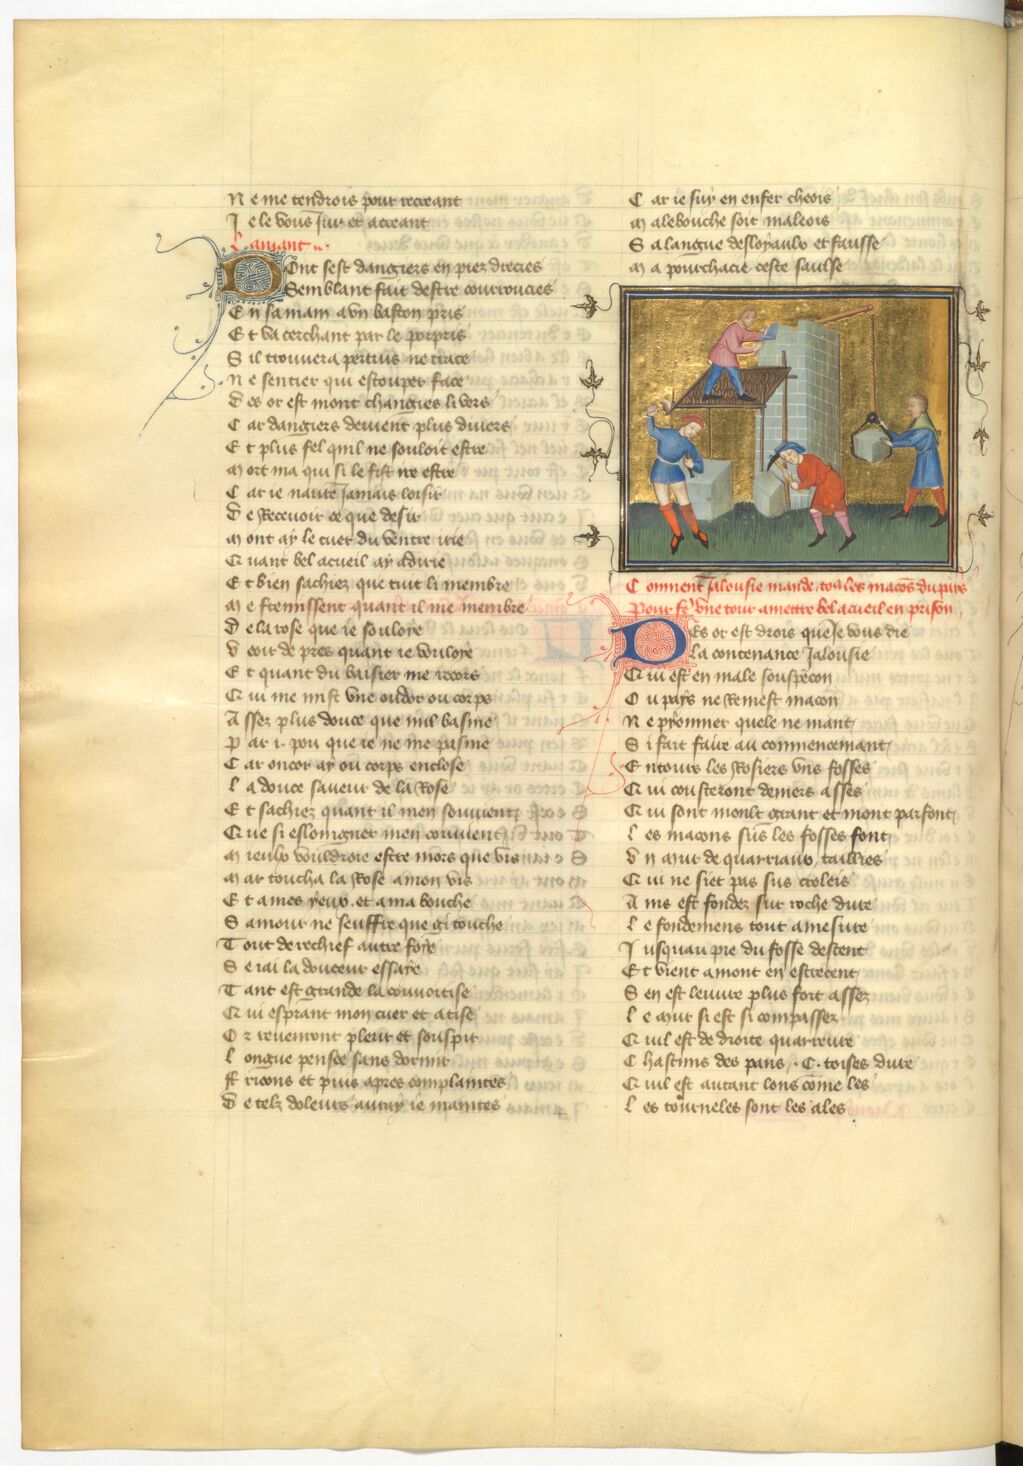 N e me tendrois pour recreant
J e le vous jur et acreant
L amant
D Ont sest dangiers en piez drecies
Semblant fait destre courroucies
E n sa main a vn baston pris
E t va cerchant par le porpris
S il trouuera pertuis ne trace
N e sentier qui estouper face
D es or est mont changies li vers
C ar dangiers deuient plus diuers
E t plus fel quil ne souloit estre
M ort ma qui si le fist ire estre
C ar ie nauré jamais loisir
D e Receuoir ce que desir
M ont ay le cuer du ventre irie
Q uant bel acueil ay adirie
E t bien sachiez que tuit li membre
M e fremissent quant il me membre
D e la rose que ie souloye
V eoit de pres quant ie vouloye
E t quant du baisier me recors
Q ui me mist vne oudor ou corps
A ssez plus douce que mil basme
P ar i. pou que ie ne me pasme
C ar oncor ay ou corps enclose
L a douce saueur de la Rose
E t sachiez quant il men souuient
Q ue si eslongner men conuient
M ieulx vouldroie estre mors que vis
M ar toucha la Rose a mon vis
E t a mes yeux. et a ma bouche
S amour ne seuffre que gi touche
T out de rechief autre foye
S e iai la douceur essaye
T ant est grande la couuoitise
Q ui esprant mon cuer et atise
O r reuenront pleur et souspir
L ongue pensee sans dormir
F ricons et puis apres complaintes
D e telz doleurs auray ie maintes
C ar ie suy en enfer cheois
M alebouche soit maleois
S a langue desloyaulx et fausse
M a pourchacie ceste saulse
C omment Jalousie mande tous les macons du pays
Pour fe vne tour a mettre bel acueil en prison
D Es or est drois que je vous die
la contenance Jalousie
Q ui est en male souspecon
O u pays ne Remest macon
N e pyonnier quele ne mant
S i fait faire au commencemant
E ntour les Rosiers vns fosses
Q ui cousteront deniers asses
Q ui sont moult grant et mont parfont
L es macons sus les fosses font
V n mur de quarriaux taillies
Q ui ne siet pas sus croleis
A ins est fondez sur roche dure
L e fondemens tout a mesure
J usquau pie du fosse descent
E t vient amont en estrecent
S en est leuure plus fort assez
L e mur si est si compassez
Q uil est de droite quarreure
C hascuns des pans .C. toises dure
Q uil est autant lons come les
L es tourneles sont les ales